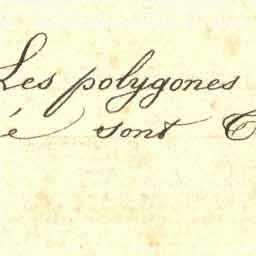 Les polygones
é sont C